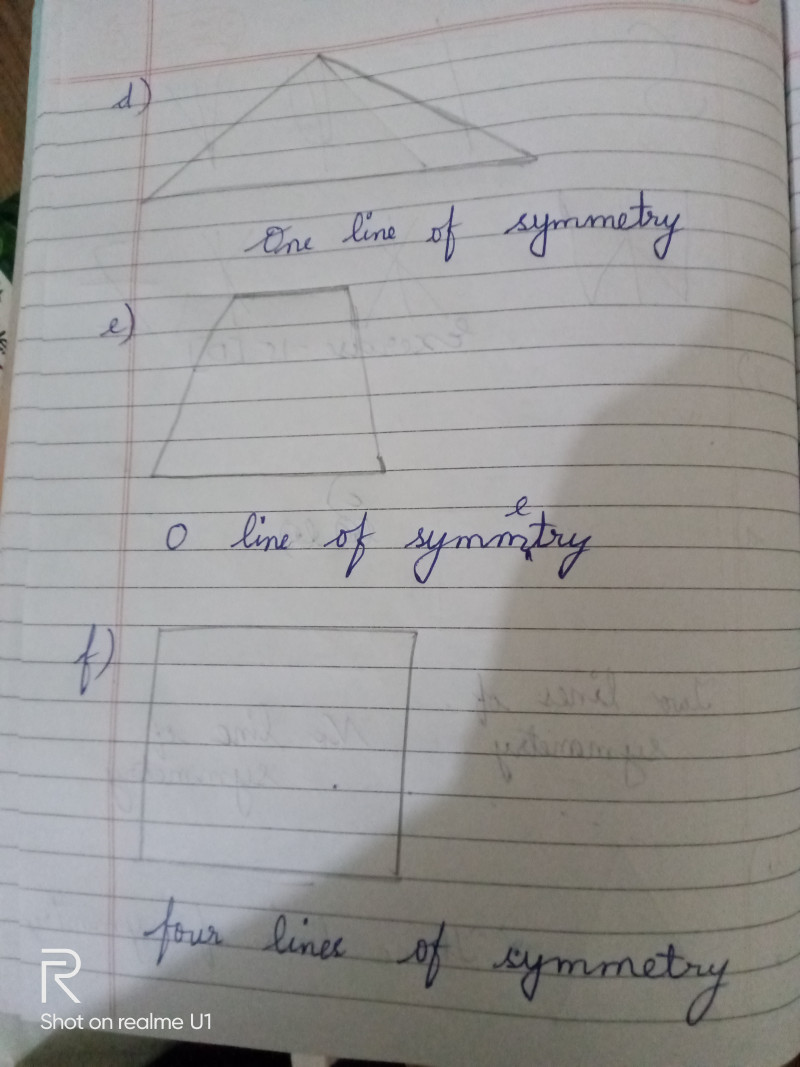 d)
One line of symmetry
e)
0 line of symmetry
f)
four lines of symmetry
R
Shot on realme U1